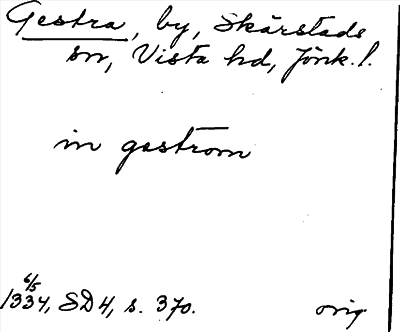 Gestra, by, Skärstads
sn, Vista hd, Jönk. l.
in gastrom
6/5
1334, SD 4, s. 370.
orig